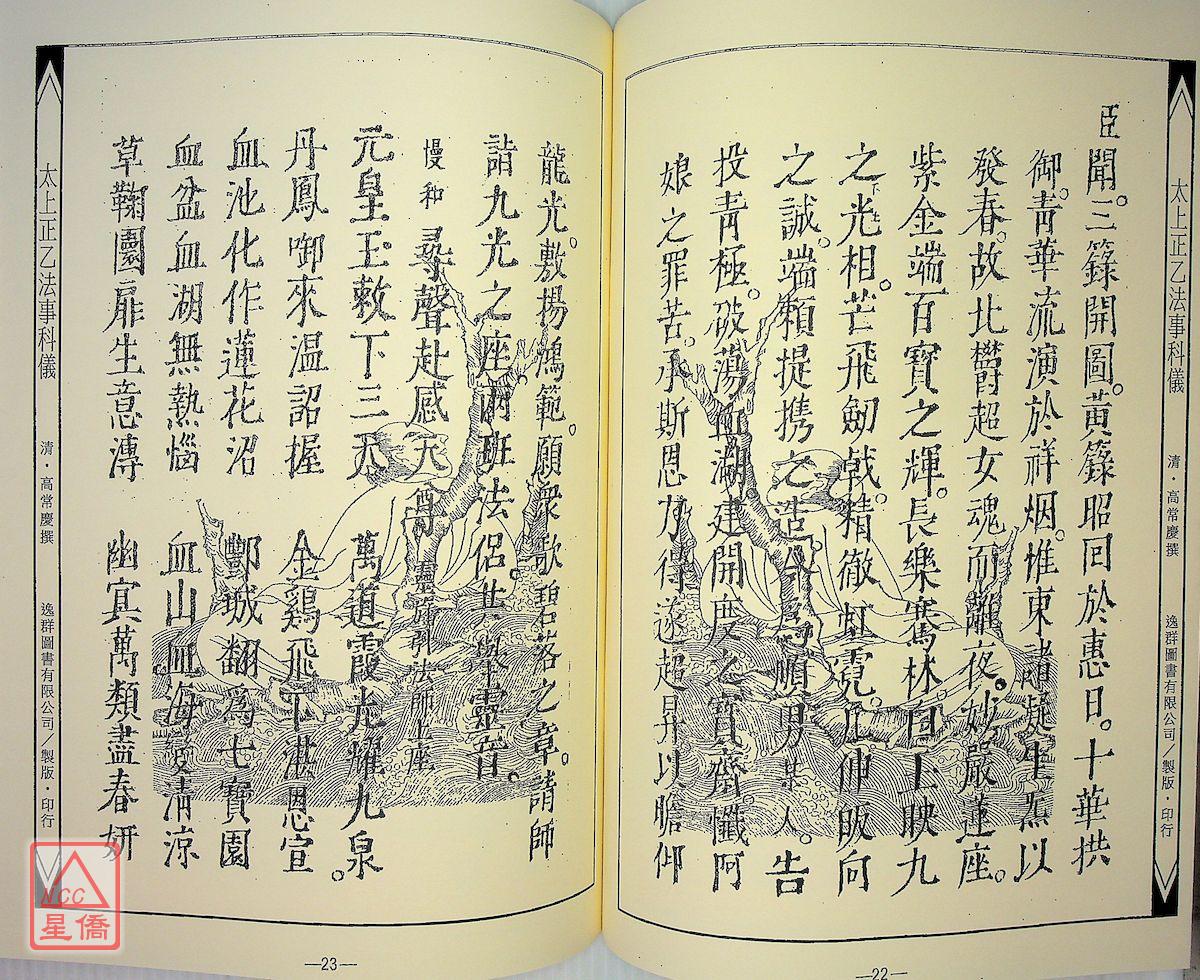 太上正乙法事科儀 清·高常慶撰 逸群圖書有限公司／製版·印行
臣
聞。三籙開圖。黃籙昭回於惠日。十華拱
御。青華流演於祥烟。惟東諸疑生炁以
發春。故北欝超女魂而離夜。妙嚴蓮座。
紫金端百寶之輝。長樂騫林。回上映九
之光相。芒飛劒戟。精徹虹霓。仰伸皈向
之誠。端賴提携之造。今爲順男某人。告
投靑極。破蕩血湖。建開度之寶齋。懺阿
娘之罪苦。承斯恩力。得遂超昇。以瞻仰
—22—
龍光。敷揚鴻範。願衆歌碧落之章。請師
詣九光之座。兩班法侶。共樂靈音。
慢和 尋聲赴感天尊 靈旛引法師上座
元皇玉敕下三天 萬道霞光耀九泉
丹鳳啣來温詔握 金鷄飛下湛恩宣。
血池化作蓮花沼 酆城翻爲七寶園
血盆血湖無熱惱 血山血海變清涼
草鞠園扉生意溥 幽冥萬類盡春妍
太上正乙法事科儀 清·高常慶撰 逸群圖書有限公司／製版·印行
—23—
NCC
星僑